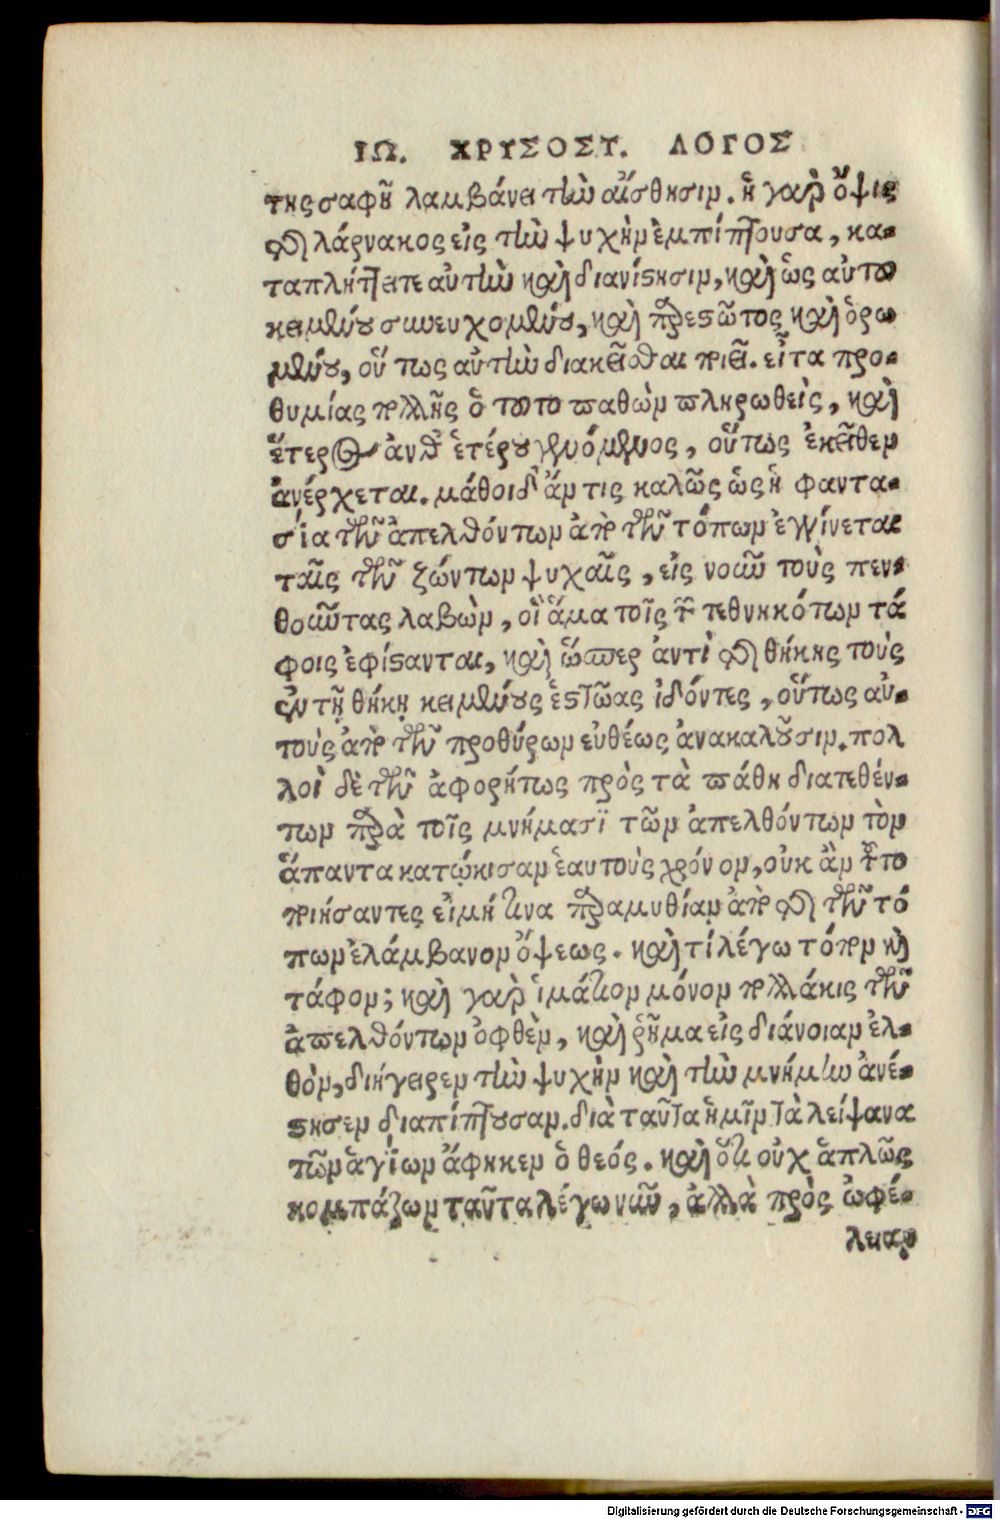 ΙΩ. ΧΡΥΣΟΣΤ. ΛΟΓΟΣ
της σαφῆ λαμβάνει τὴν αἴσθησιν. ἡ γὰρ ὄψις
τῆς λάρνακος εἰς τὴν ψυχὴν ἐμπίπτουσα, κα-
ταπλήττει τε αὐτὴν καὶ διανίστησιν, καὶ ὡς αὐτοῦ
κειμένου συνευχομένου, καὶ παρεστῶτος καὶ ὁρω
μένου, οὕτως αὐτὴν διακεῖσθαι ποιεῖ. εἶτα προ-
θυμίας πολλῆς ὁ τοῦτο παθὼν πληρωθεὶς, καὶ
ἕτερος ἀνθ᾽ ἑτέρου γενόμενος, οὕτως ἐκεῖθεν
ἀνέρχεται. μάθοι δ᾽ ἄν τις καλῶς ὡς ἡ φαντα-
σία τῶν ἀπελθόντων ἀπὸ τῶν τόπων ἐγγίνεται
ταῖς τῶν ζώντων ψυχαῖς, εἰς νοῦν τοὺς πεν-
θοῦντας λαβὼν, οἳ ἅμα τοῖς τῶν τεθνηκότων τά
φοις ἐφίστανται, καὶ ὥσπερ ἀντὶ τῆς θήκης τοὺς
ἐν τῇ θήκῃ κειμένους ἑστῶτας ἰδόντες, οὕτως αὐ-
τοὺς ἀπὸ τῶν προθύρων εὐθέως ἀνακαλοῦσιν. πολ
λοὶ δὲ τῶν ἀφορήτως πρὸς τὰ πάθη διατεθέν-
των παρὰ τοῖς μνήμασϊ τῶν ἀπελθόντων τὸν
ἅπαντα κατῴκισαν ἑαυτοὺς χρόνον, οὐκ ἂν τοῦτο
ποιήσαντες εἰ μή τινα παραμυθίαν ἀπὸ τῆς τῶν τό
πων ἐλάμβανον ὄψεως. καὶ τί λέγω τόπον καὶ
τάφον; καὶ γὰρ ἱμάτιον μόνον πολλάκις τῶν
ἀπελθόντων ὀφθὲν, καὶ ῥῆμα εἰς διάνοιαν ἐλ-
θὸν, διήγειρεν τὴν ψυχὴν καὶ τὴν μνήμην ἀνέ-
στησεν διαπίπτουσαν. διὰ ταῦτα ἡμῖν τὰ λείψανα
τῶν ἁγίων ἄφηκεν ὁ θεός. καὶ ὅτι οὐχ ἁπλῶς
κομπάζων ταῦτα λέγω νῦν, ἀλλὰ πρὸς ὠφέ-
λειαν
Digitalisierung gefördert durch die Deutsche Forschungsgemeinschaft - DFG